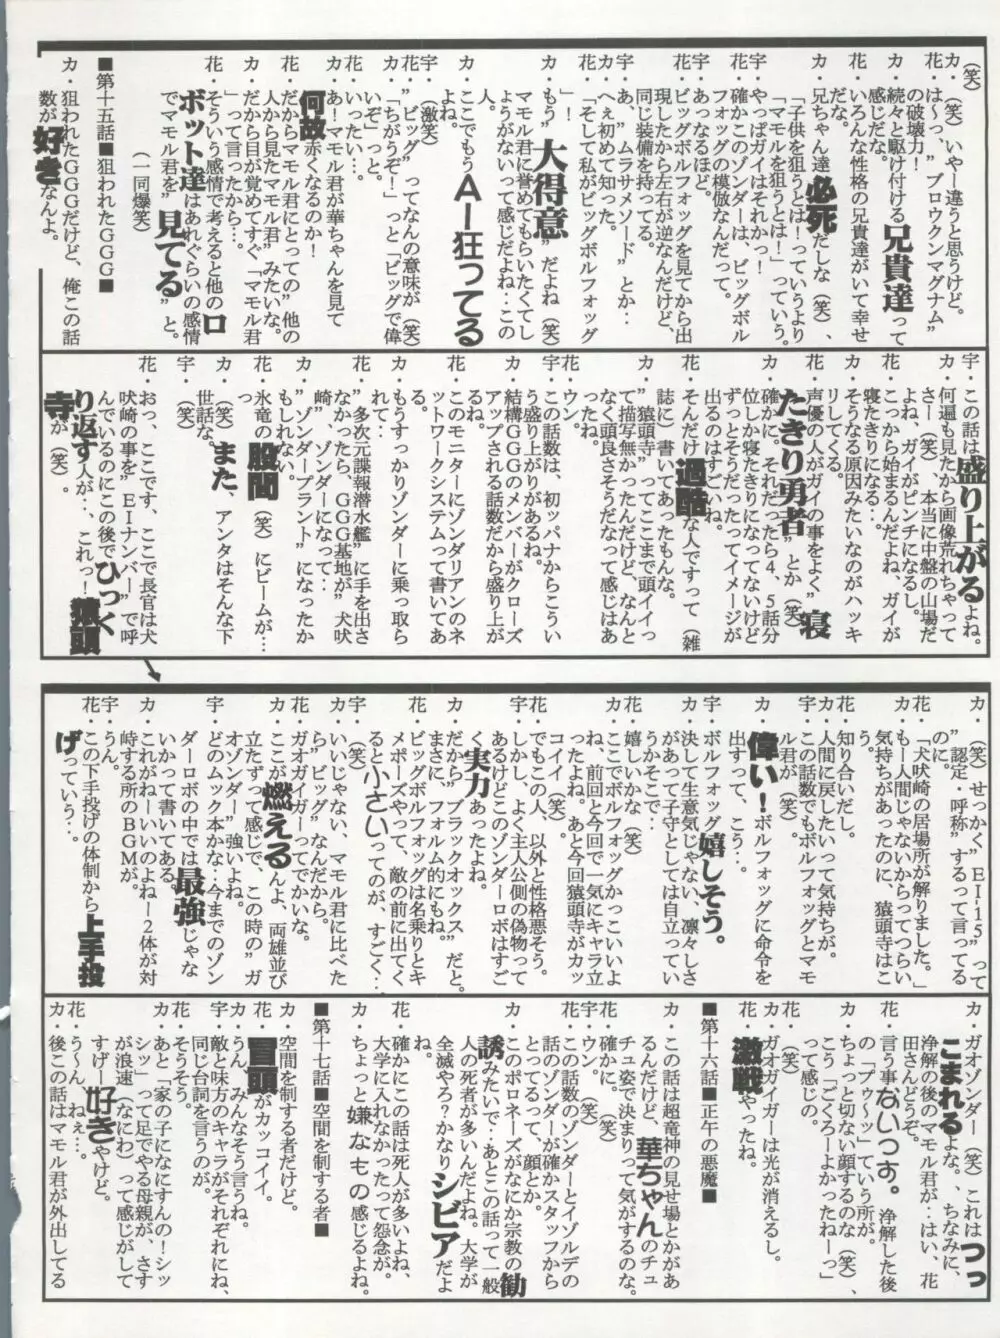 （笑）
カ・（笑）いやー違うと思うけど。
花・は～っ、”ブロウクンマグナム”
の破壊力！
カ・続々と駆け付ける兄貴達って
感じだな。
花・いろんな性格の兄貴達がいて幸せ
だな。
カ・兄ちゃん達必死だしな（笑）、
「子供を狙うとは！っていうより
「マモルを狙うとは！」っていう。
宇・やっぱガイはそれかっ！
花・確かこのゾンダーは、ビッグボル
フォッグの模倣なんだって。
宇・あっなるほど。
花・ビッグボルフォッグを見てから出
現したから左右が逆なんだけど、
同じ装備を持ってる。
宇・あ、”ムラサメソード”とか‥
カ・へぇ初めて知った。
花・「そして私がビッグボルフォッグ
」！
カ・もう”大得意”だよね（笑）
マモル君に誉めてもらいたくてし
ょうがないって感じだよね‥この
人。
カ・ここでもうＡＩ狂ってる
よね。
宇・（激笑）
花・”ビッグ”ってなんの意味が（笑）
カ・「ちがうぞ！」っと「ビッグで偉
いぞ」っと。
花・いったい…。
カ・あ！マモル君が華ちゃんを見て
何故赤くなるのか！
花・だからマモル君にとっての”他の
人から見たマモル君”みたいな。
カ・だから目が覚めてすぐ「マモル君
」って言ったから…。
花・そういう感情で考えると他のロ
ボット達はあれぐらいの感情
でマモル君を”見てる”と。
（一同爆笑）
■第十五話■狙われたＧＧＧ■
カ・狙われたＧＧＧだけど、俺この話
数が好きなんよ。
宇・この話は盛り上がるよね。
カ・何遍も見たから画像荒れちゃって
さー（笑）、本当に中盤の山場だ
よね、ガイがピンチになるし。
花・こっから始まるんだよね、ガイが
寝たきりになる‥。
カ・そうなる原因みたいなのがハッキ
リしてくる。
花・声優の人がガイの事をよく”寝
たきり勇者”とか（笑）
カ・確かに。それだったら４、５話分
位しか寝たきりになってないけど
ずっとそうだったってイメージが
出るのはすごいね。
花・そんだけ過酷な人ですって（雑
誌に）書いてあったもんな。
カ・”猿頭寺”ってここまで頭イイっ
て描写無かったんだけど、なんと
なく頭良さそうだなって感じはあ
ったね。
花・ウン。
宇・この話数は、初ッパナからこうい
う盛り上がりがあるね。
カ・結構ＧＧＧのメンバーがクローズ
アップされる話数だから盛り上が
るね。
花・このモニターにゾンダリアンのネ
ットワークシステムって書いてあ
る。
カ・もうすっかりゾンダーに乗っ取ら
れて‥
花・”多次元諜報潜水艦”に手を出さ
なかったら、ＧＧＧ基地が”犬吠
崎”、ゾンダーになって‥
カ・”ゾンダープラント”になったか
もしれない。
花・氷竜の股間（笑）にビームが…
っ
カ・（笑）また、アンタはそんな下
世話な。
宇・（笑）
花・おっ、ここです、ここで長官は犬
吠崎の事を”ＥＩナンバー”で呼
んでいるのにこの後でひっく
り返す人が‥、これっ！猿頭
寺が（笑）。
カ・（笑）せっかく”ＥＩ-15”って
”認定・呼称”するって言ってる
のに。
花・「犬吠崎の居場所が解りました。」
カ・もー人間じゃないからってつらい
気持ちがあったのに、猿頭寺はこ
う。
花・知り合いだし。
カ・人間に戻したいって気持ちが。
宇・この話数でもボルフォッグとマモ
ル君が（笑）
カ・偉い！ボルフォッグに命令を
出すって、こう‥。
宇・ボルフォッグ嬉しそう。
カ・決して生意気じゃない、凛々しさ
があって子守としては自立ってい
うかそこで‥
花・嬉しいかな（笑）
カ・ここでボルフォッグかっこいいよ
ね、前回と今回で一気にキャラ立
ったよね。あと今回猿頭寺がカッ
コイイ（笑）。
花・でもこの人、以外と性格悪そう。
宇・しかし、よく主人公側の偽物って
あるけどこのゾンダーロボはすご
く実力あったよね。
カ・だから”ブラックオックス”だと。
まさに、フォルム的にもね。
花・ビッグボルフォッグは名乗りとキ
メポーズやって、敵の前に出てく
ると小さいってのが、すごく‥
宇・（笑）
カ・いいじゃない、マモル君に比べた
ら”ビッグ”なんだから。
花・ガオガイガーってでかいな。
カ・ここが燃えるんよ、両雄並び
立たずって感じで、この時の”ガ
オゾンダー”強いよね。
宇・どのムック本かな‥今までのゾン
ダーロボの中では最強じゃな
いかって書いてある。
カ・これがねーいいのよねー２体が対
峙する所のＢＧＭが。
宇・うん。
花・この下手投げの体制から上手投
げっていう‥。
カ・ガオゾンダー（笑）これはつっ
こまれるよな、、ちなみに、
浄解の後のマモル君が‥はい、花
田さんどうぞ。
花・言う事ないっす。浄解した後
の「プゥ～ッ」ていう所が。
カ・ちょっと切ない顔するのな（笑）、
こう「ごくろーよかったねーっ」
って感じの。
花・（笑）
カ・ガオガイガーは光が消えるし。
花・激戦やったね。
■第十六話■正午の悪魔■
カ・この話は超竜神の見せ場とかがあ
るんだけど、華ちゃんのチュ
チュ姿で決まりって気がするのな。
花・確かに。（笑）
宇・ウン。（笑）
花・この話数のゾンダーとイゾルデの
話のゾンダーが確かスタッフから
とってるって、顔とか。
カ・このポロネーズがなにか宗教の勧
誘みたいで‥あとこの話って一般
人の死者が多いんだよね。大学が
全滅やろ？かなりシビアだよ
ね。
花・確かにこの話は死人が多いよね、
大学に入れなかったって怨念が。
カ・ちょっと嫌なもの感じるよね。
■第十七話■空間を制する者■
カ・空間を制する者だけど。
花・冒頭がカッコイイ。
カ・うん、みんなそう言うね。
宇・敵と味方のキャラがそれぞれにね、
同じ台詞を言うのが。
花・そうそう。
カ・あと「家の子になにすんの！シッ
シッ」って足でやる母親が、さす
が浪速（なにわ）って感じがして
すげー好きやけど。
花・う～ん、ねぇ…。
カ・後この話はマモル君が外出してる